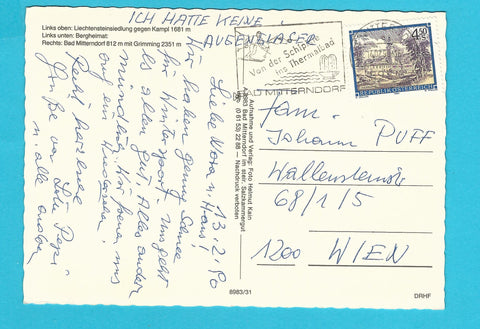 ICH HATTE KEINE
AUGENGLÄSER
Links oben: Liechtensteinsiedlung gegen Kampl 1681 m
Links unten: Bergheimat:
Rechts: Bad Mitterndorf 812 m mit Grimming 2351 m
13.2.90
Liebe Nora u. Hans!
Wir haben genug Schnee
für Wintersport. Uns geht
es allen gut. Alles andere
mündlich. Wir freuen uns
auf ein Wiedersehen.
Grüße von
u. alle anderen
Aufnahme und Verlag: Foto Helmut Kain
A-8983 Bad Mitterndorf im steir. Salzkammergut
Tel. (0 61 53) 22 88 – Nachdruck verboten
8983/31
Von der Schipiste
ins Thermalbad
BAD MITTERNDORF
4.50
REPUBLIK ÖSTERREICH
Fam.
Johann PUFF
68/1/5
1200 WIEN
DRHF